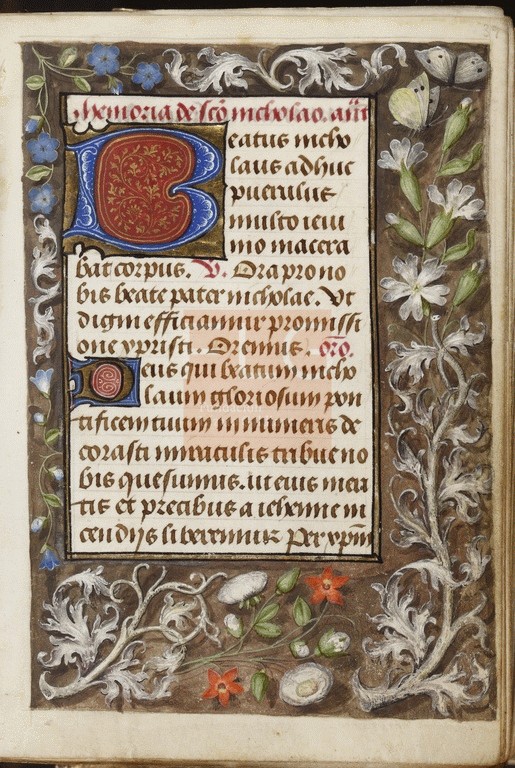 Memoria de scō nicholao. añt
Beatus nicho
laus adhuc
puerulus
multo ieiu
nio macera
bat corpus. V. Ora pro no
bis beate pater nicholae. Vt
digni efficiamur promissi
one xpristi. Oremus. oro.
Deus qui beatum nicho
laum gloriosum pon
tificem tuum innumeris de
corasti miraculis tribue no
bis quesumus. ut eius meri
tis et precibus a iehenne in
cendijs liberemur Per xpm̄